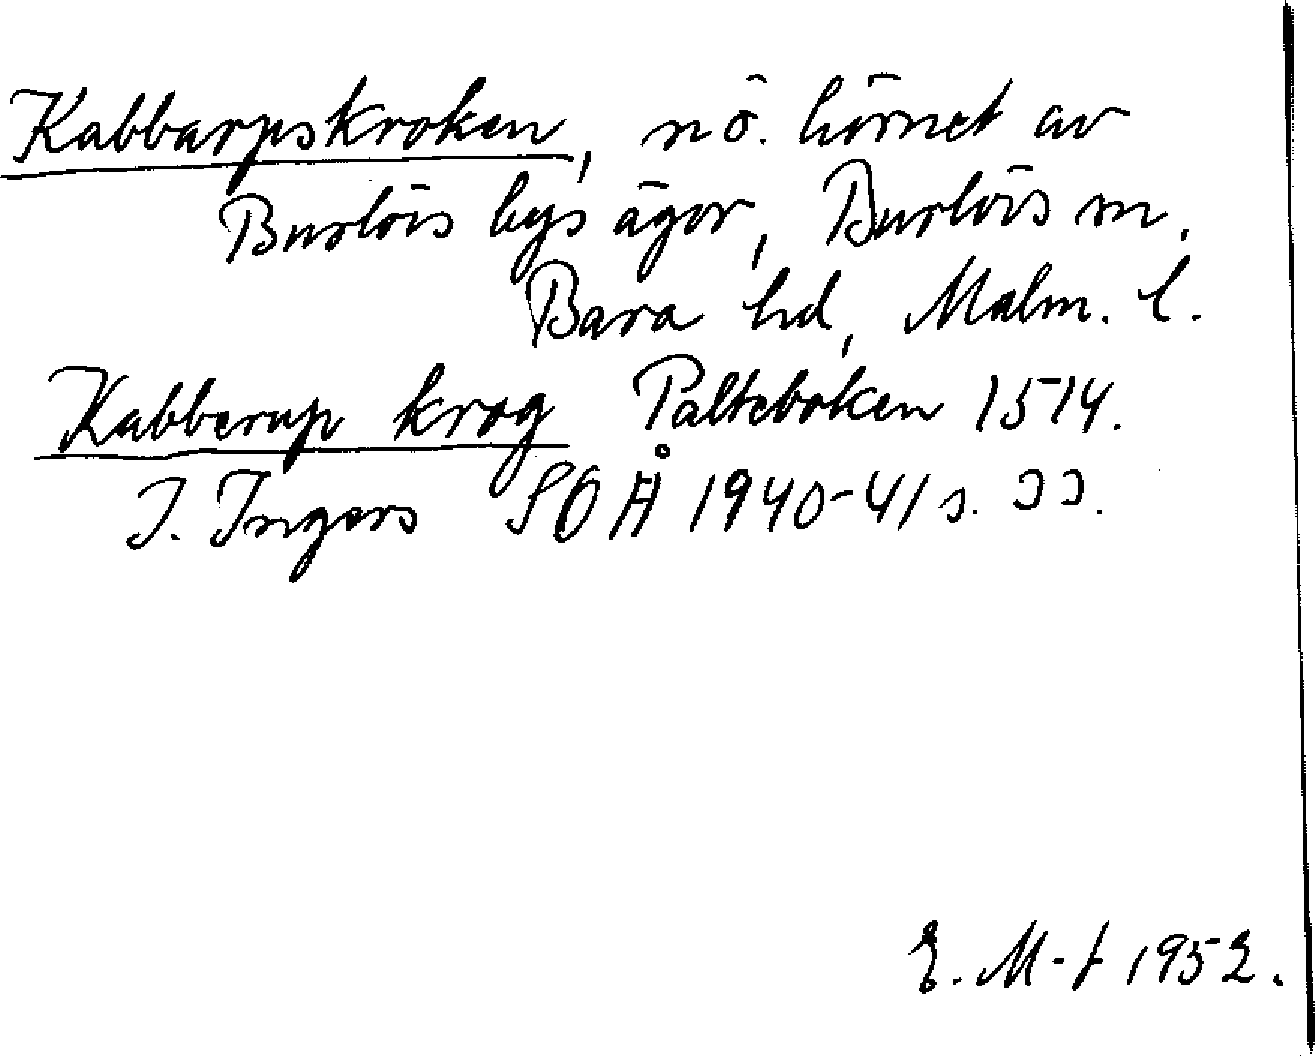 Kabbarpskroken, nö. hörnet av
Burlövs bys ägor, Burlövs sn.
Bara hd, Malm. l.
Kabberup krog Palteboken 1514.
I. Ingers SOÅ 1940-41 s. 33.
E. M-t 1952.